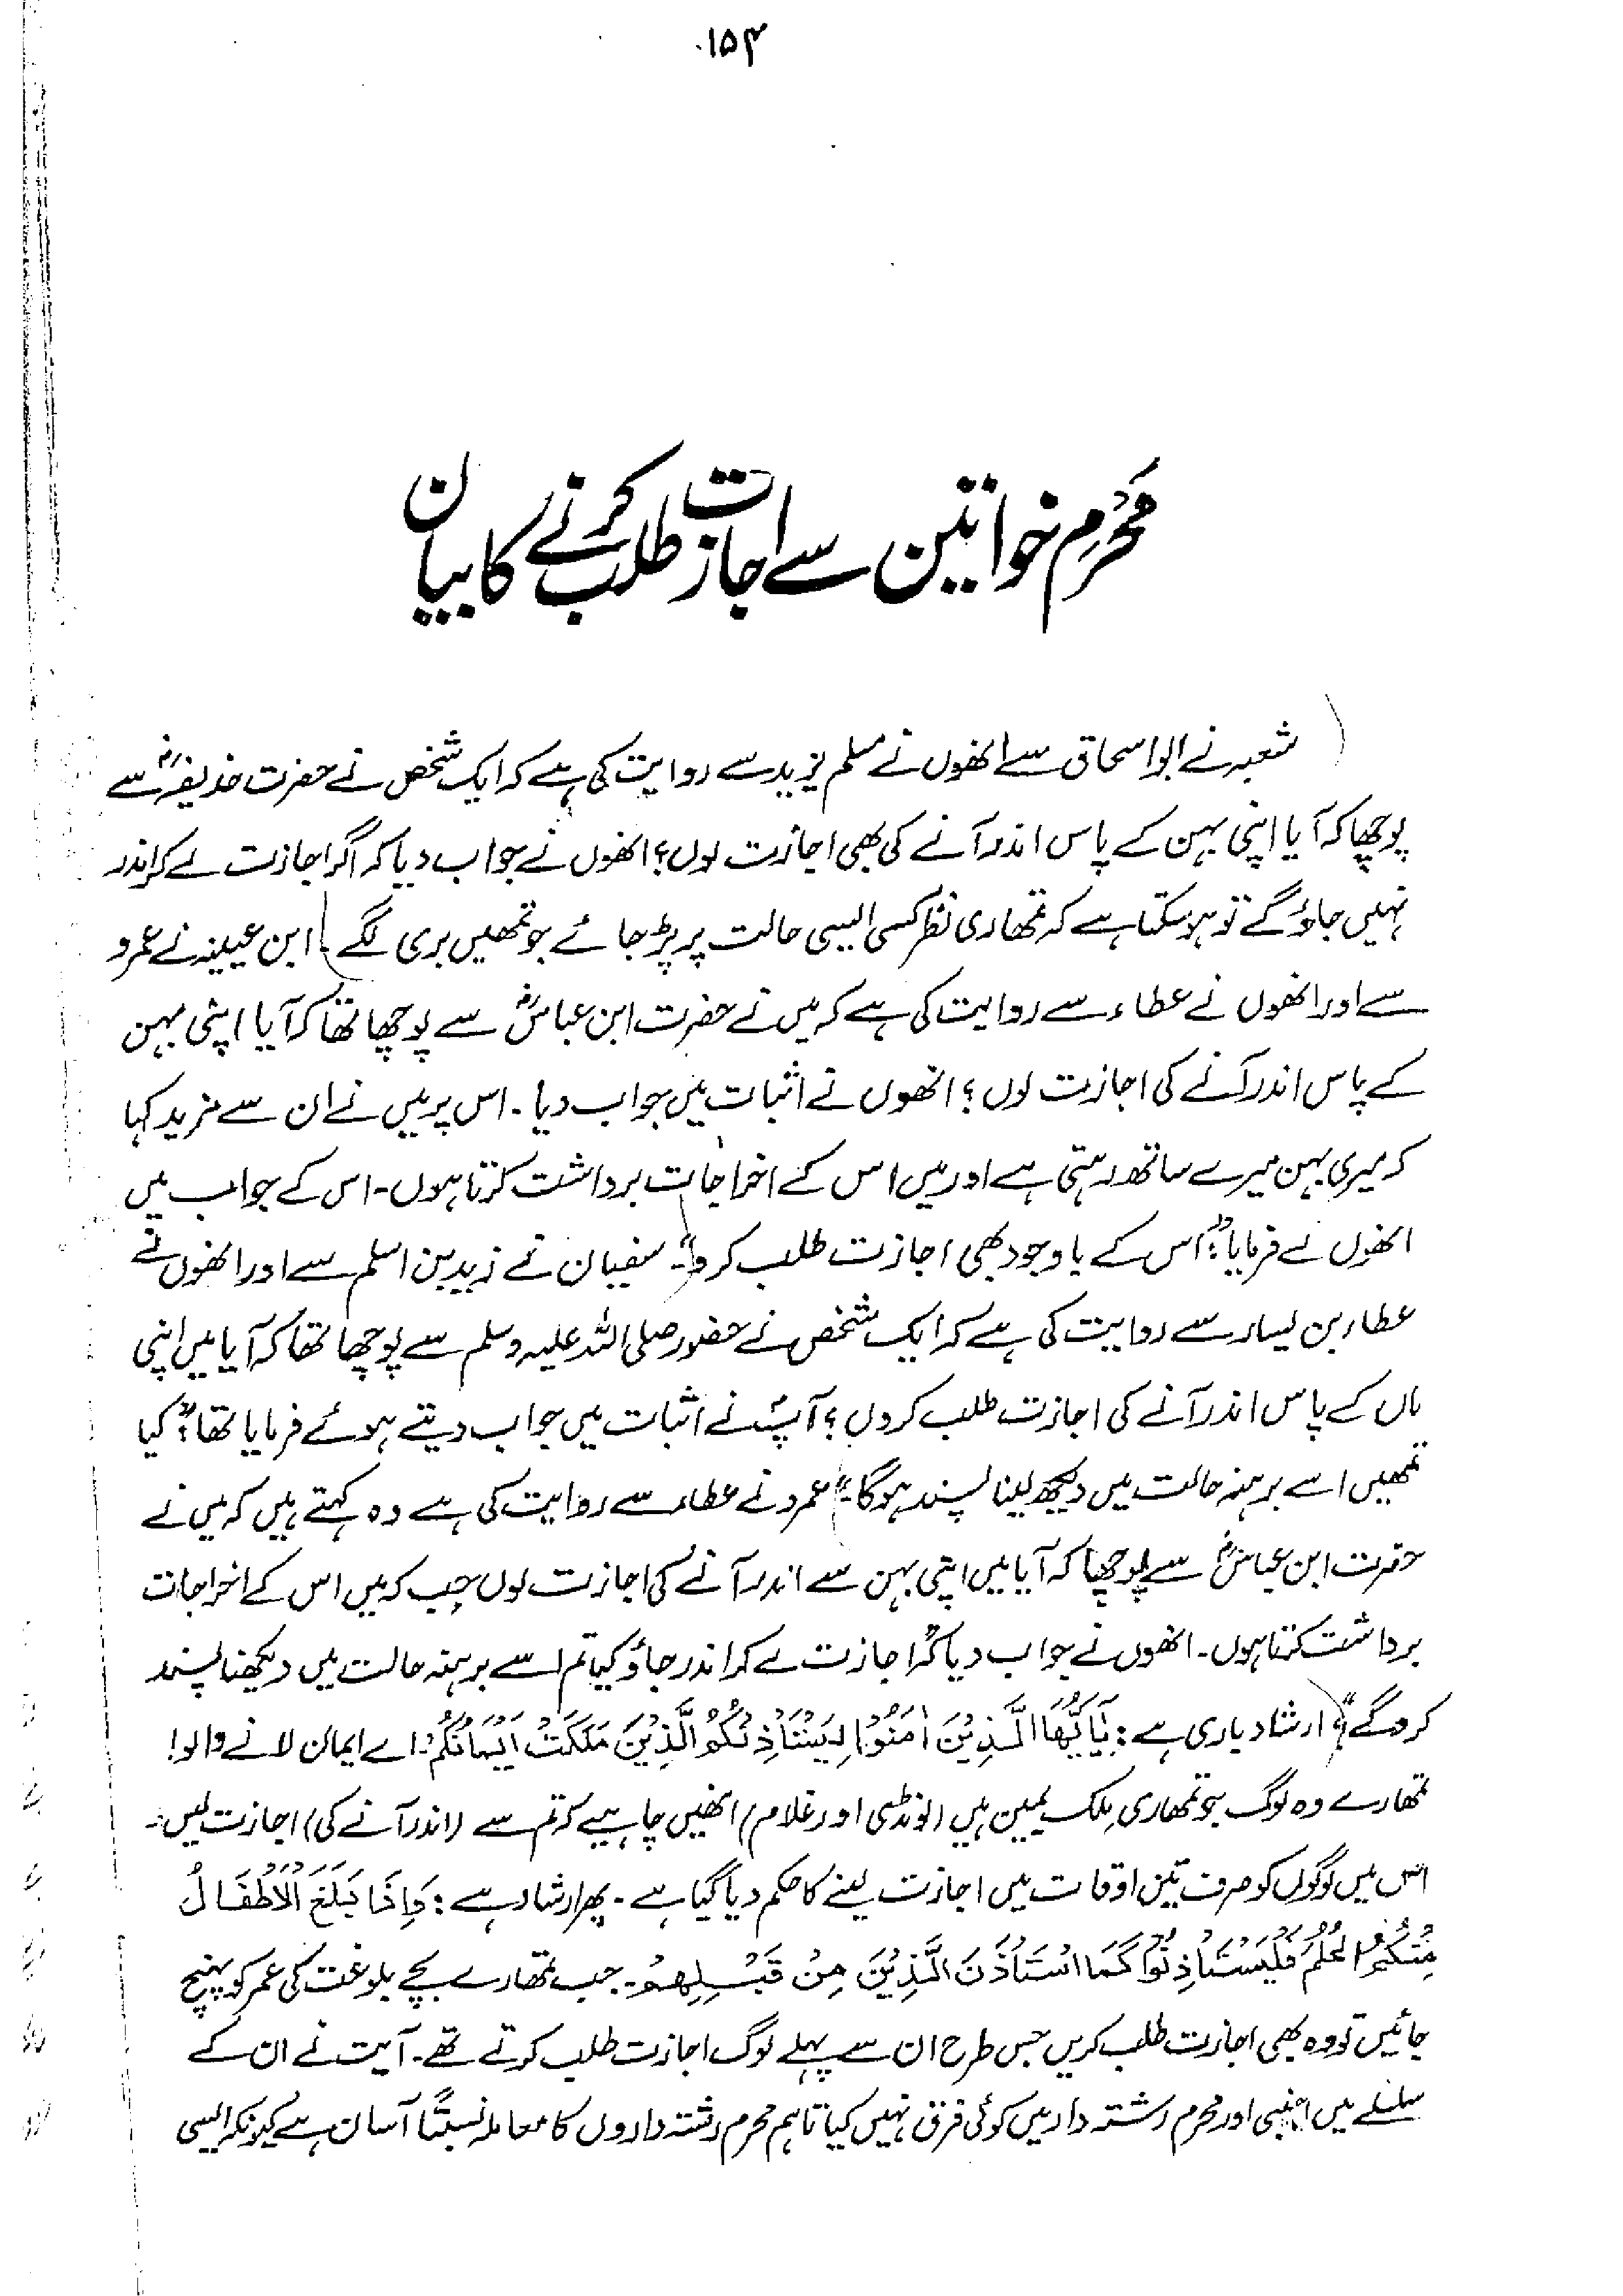 ۱۵۴
محرم خواتین سے اجازت طلب کرنے کا بیان
شعبہ نے ابواسحاق سے انھوں نے مسلم یزید سے روایت کی ہے کہ ایک شخص نے حضرت حذیفہؓ سے
پوچھا کہ آیا اپنی بہن کے پاس اندر آنے کی بھی اجازت لوں؟ انھوں نے جواب دیا کہ اگر اجازت لے کر اندر
نہیں جاؤ گے تو ہو سکتا ہے کہ تمھاری نظر کسی ایسی حالت پر پڑ جائے جو تمھیں بری لگے) ابن عیینہ نے عمرو
سے اور انھوں نے عطاء سے روایت کی ہے کہ میں نے حضرت ابن عباسؓ سے پوچھا تھا کہ آیا اپنی بہن
کے پاس اندر آنے کی اجازت لوں؟ انھوں نے اثبات میں جواب دیا۔ اس پر میں نے ان سے مزید کہا
کہ میری بہن میرے ساتھ رہتی ہے اور میں اس کے اخراجات برداشت کرتا ہوں۔ اس کے جواب میں
انھوں نے فرمایا: "اس کے باوجود بھی اجازت طلب کرو۔" سفیان نے زید بن اسلم سے اور انھوں نے
عطاء بن یسار سے روایت کی ہے کہ ایک شخص نے حضور صلی اللہ علیہ وسلم سے پوچھا تھا کہ آیا میں اپنی
ماں کے پاس اندر آنے کی اجازت طلب کروں؟ آپؐ نے اثبات میں جواب دیتے ہوئے فرمایا تھا: "کیا
تمھیں اسے برہنہ حالت میں دیکھ لینا پسند ہوگا۔" عمرو نے عطاء سے روایت کی ہے وہ کہتے ہیں کہ میں نے
حضرت ابن عباسؓ سے پوچھا کہ آیا میں اپنی بہن سے اندر آنے کی اجازت لوں جب کہ میں اس کے اخراجات
برداشت کرتا ہوں۔ انھوں نے جواب دیا کہ "اجازت لے کر اندر جاؤ کیا تم اسے برہنہ حالت میں دیکھنا پسند
کرو گے" ارشاد باری ہے: یٰاَیُّھَا الَّذِیْنَ اٰمَنُوْا لِیَسْتَاْذِنْکُمُ الَّذِیْنَ مَلَکَتْ اَیْمَانُکُمْ۔ اے ایمان لانے والو!
تمھارے وہ لوگ جو تمھاری مِلک یمین ہیں (لونڈی اور غلام) انھیں چاہیے کہ تم سے (اندر آنے کی) اجازت لیں۔
اس میں لوگوں کو صرف تین اوقات میں اجازت لینے کا حکم دیا گیا ہے۔ پھر ارشاد ہے: وَاِذَا بَلَغَ الْاَطْفَالُ
مِنْکُمُ الْحُلُمَ فَلْیَسْتَاْذِنُوْا کَمَا اسْتَاْذَنَ الَّذِیْنَ مِنْ قَبْلِھِمْ۔ جب تمھارے بچے بلوغت کی عمر کو پہنچ
جائیں تو وہ بھی اجازت طلب کریں جس طرح ان سے پہلے لوگ اجازت طلب کرتے تھے۔ آیت نے ان کے
سلسلے میں اجنبی اور محرم رشتہ دار میں کوئی فرق نہیں کیا تاہم محرم رشتہ داروں کا معاملہ نسبتًا آسان ہے کیونکہ ایسی